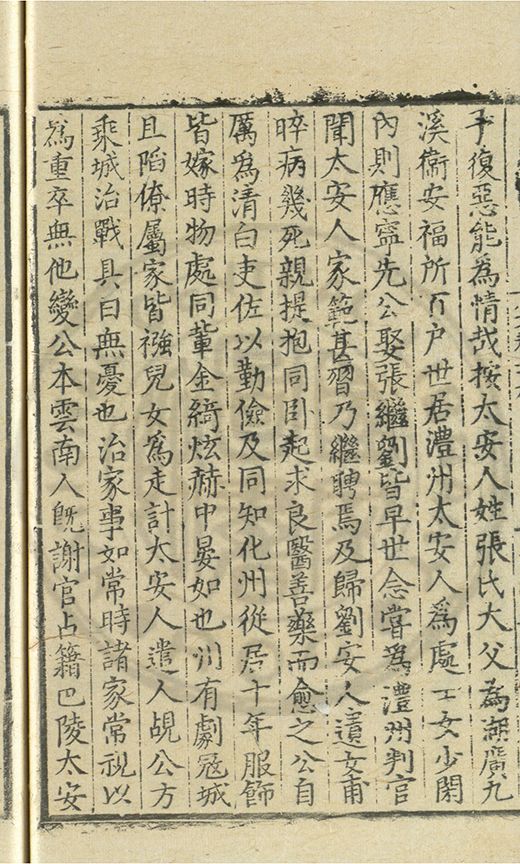 子復惡能為情哉按太安人姓張氏大父為湖廣九
溪衞安福所百户世居澧州太安人為處士女少閑
內則應寧先公娶張繼劉皆早世念嘗為澧州判官
聞太安人家範甚習乃繼聘焉及歸劉安人遺女甫
晬病幾死親提抱同卧起求良醫善藥而愈之公自
厲為清白吏佐以勤儉及同知化州從居十年服飾
皆嫁時物處同輩金綺炫赫中晏如也州有劇冦城
且陷僚屬家皆襁兒女為走計太安人遣人覘公方
乘城治戰具曰無憂也治家事如常時諸家常視以
為重卒無他變公本雲南人旣謝官占籍巴陵太安